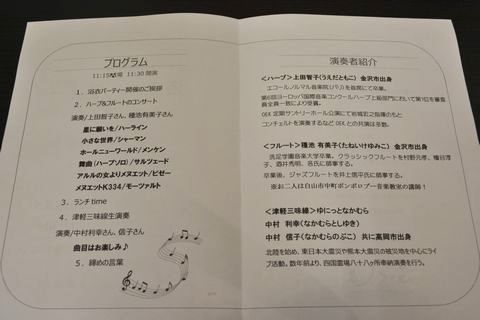 プログラム
11:15開場 11:30 開演
1．浴衣パーティー開催のご挨拶
2．ハープ&フルートのコンサート
演奏/上田智子さん、種池有美子さん
星に願いを/ハーライン
小さな世界/シャーマン
ホールニューワールド/メンケン
舞曲（ハープソロ）/サルツェード
アルルの女よりメヌエット/ビゼー
メヌエットK334/モーツァルト
3．ランチ time
4．津軽三味線生演奏
演奏/中村利幸さん、信子さん
曲目はお楽しみ♪
5．締めの言葉
演奏者紹介
＜ハープ＞上田智子(うえだともこ) 金沢市出身
エコールノルマル音楽院(パリ)を首席にて卒業。
第6回ヨーロッパ国際音楽コンクールハープ上級部門において第1位を審査
員全員一致により受賞。
OEK 定期サントリーホール公演にて岩城宏之指揮のもと
コンチェルトを演奏するなど OEK との共演は多数。
＜フルート＞種池 有美子(たねいけゆみこ) 金沢市出身
洗足学園音楽大学卒業。クラシックフルートを村野元孝、
酒井秀明、名氏に師事する。
卒業後、ジャズフルートを井上信平氏に師事する。
※お二人は白山市中町ボンボロプー音楽教室の講師！
＜津軽三味線＞ゆにっとなかむら
中村 利幸(なかむらとしゆき)
中村 信子(なかむらのぶこ) 共に高岡市出身
北陸を始め、東日本大震災や熊本大震災の被災地を中心にライ
ブ活動。数年前より、四国霊場八十八ヶ所奉納演奏を行う。